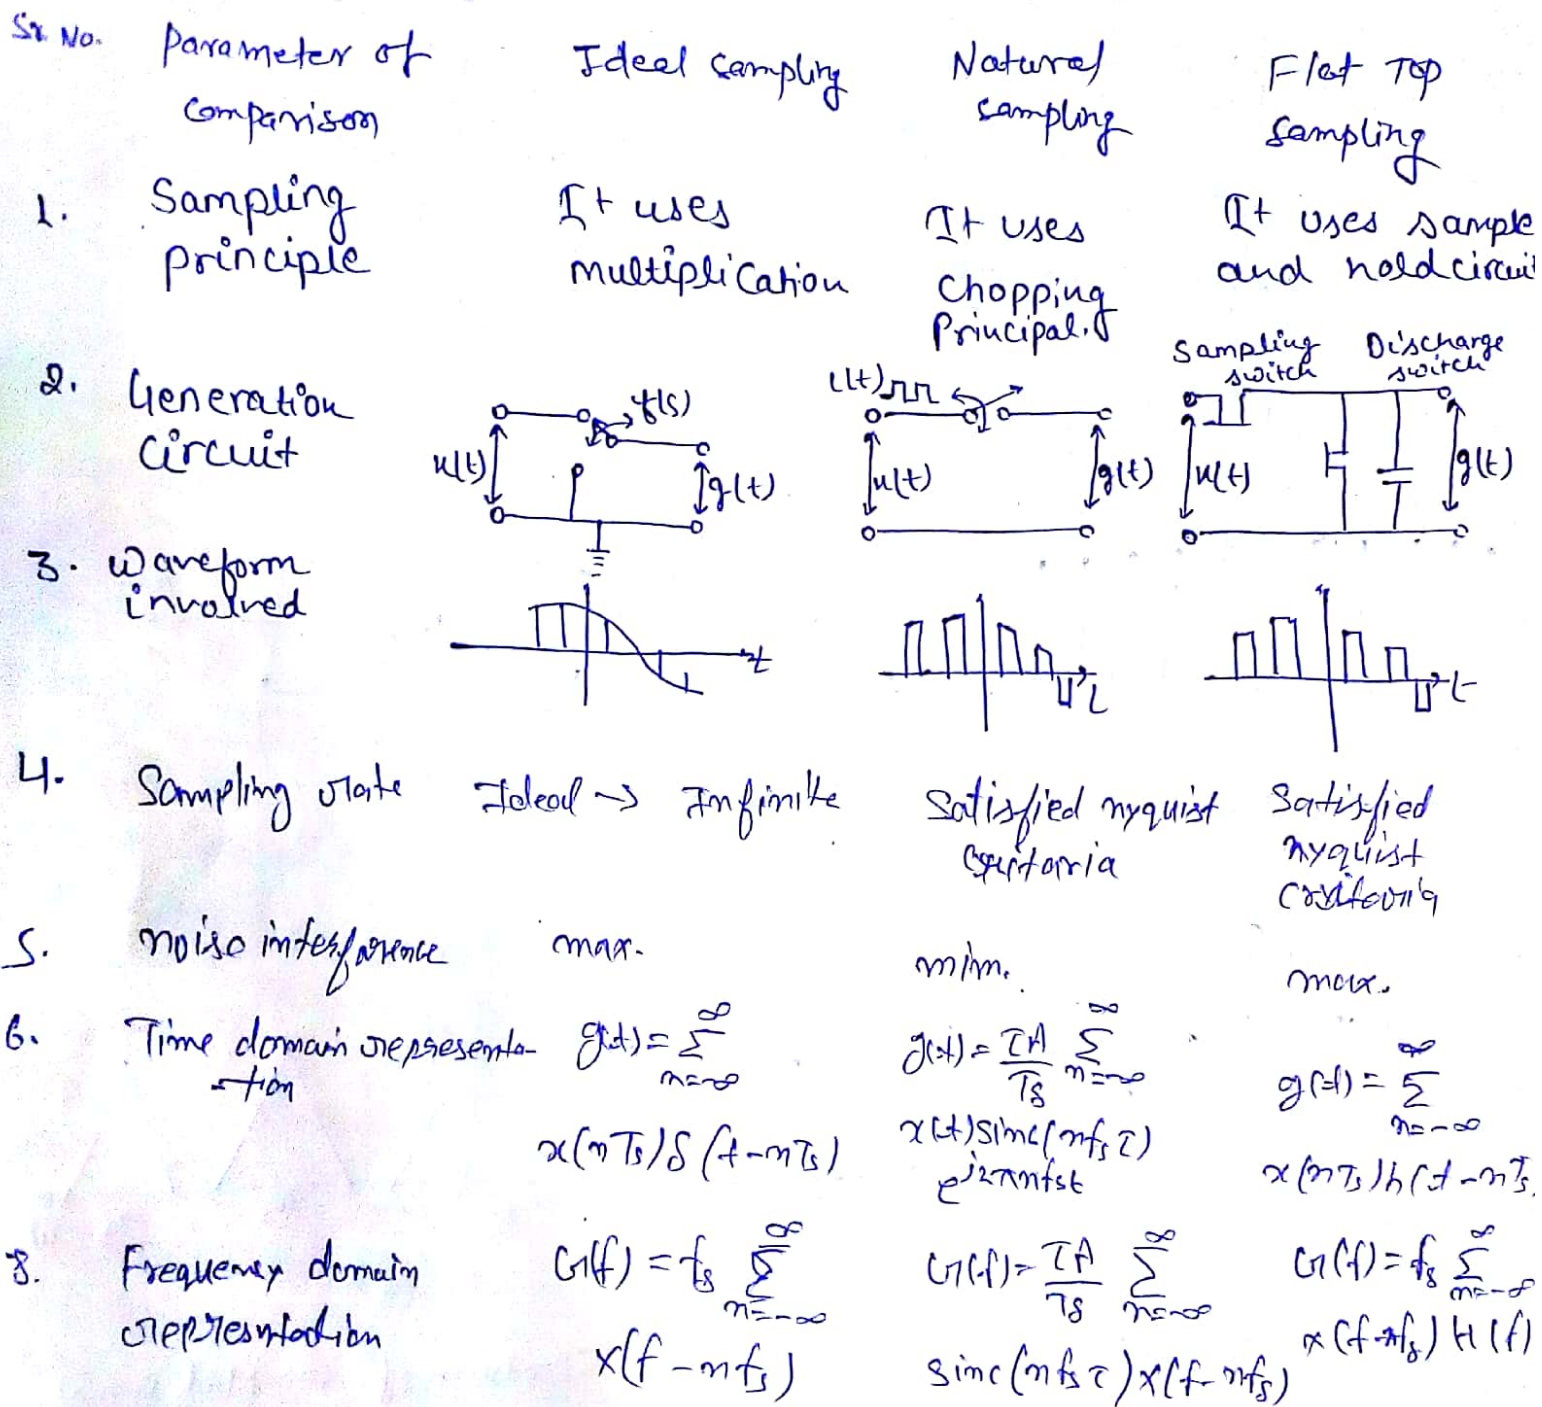 Sr. No. Parameter of Comparison Ideal sampling Natural sampling Flat Top sampling
1. Sampling principle It uses multiplication It uses Chopping Principal. It uses sample and hold circuit
2. Generation circuit
t(s)
x(t) g(t)
c(t)
x(t) g(t)
Sampling switch Discharge switch
x(t) g(t)
3. Waveform involved
t t t
4. Sampling rate Ideal → Infinite Satisfied nyquist criteria Satisfied nyquist criteria
5. noise interference max. mim. max.
6. Time domain representa-tion g(t) = ∑ n=-∞ ∞ x(nTs) δ(t-nTs) g(t) = τA/Ts ∑ n=-∞ ∞ x(t) sinc(nfsτ) e^j2πnfst g(t) = ∑ n=-∞ ∞ x(nTs) h(t-nTs
8. Frequency domain representation G(f) = fs ∑ n=-∞ ∞ x(f-nfs) G(f) = τA/Ts ∑ n=-∞ ∞ sinc(nfsτ) x(f-nfs) G(f) = fs ∑ n=-∞ ∞ x(f-nfs) H(f)